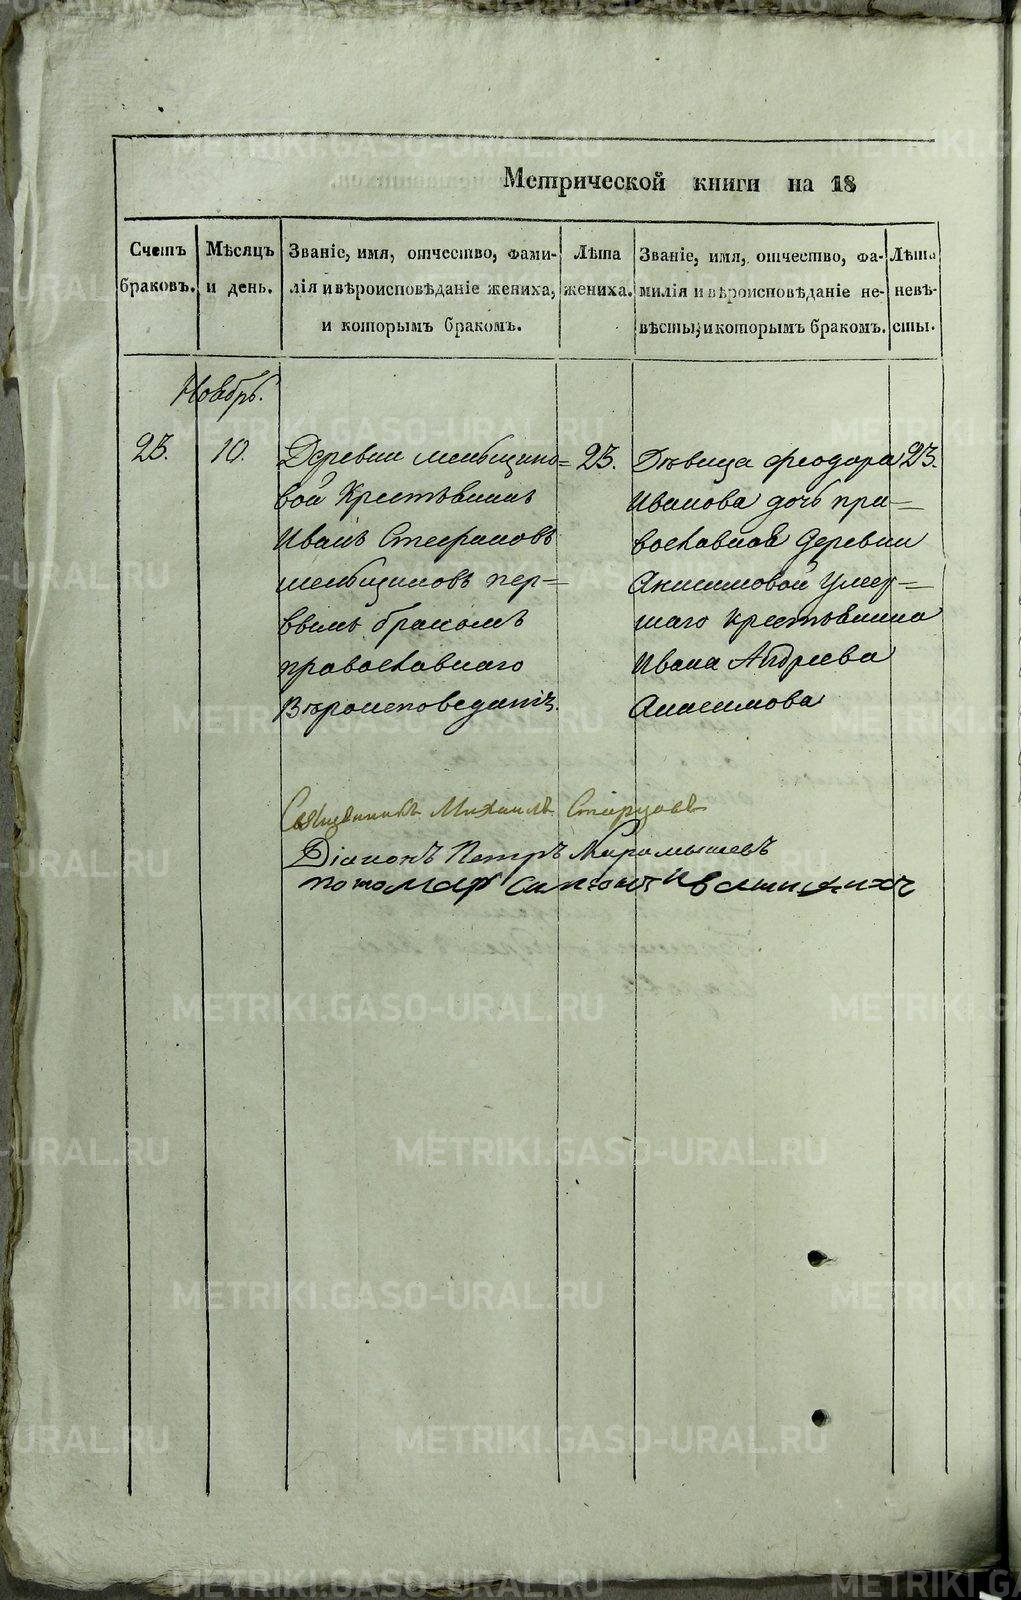 Метрической книги на 18
Счетъ браковъ.
Мѣсяцъ и день.
Званіе, имя, отчество, фами-
лія и вѣроисповѣданіе жениха,
и которымъ бракомъ.
Лѣта жениха.
Званіе, имя, отчество, фа-
милія и вѣроисповѣданіе не-
вѣсты, и которымъ бракомъ.
Лѣта невѣ-
сты.
Ноябрь.
23.
10.
Деревни меньщико=
вой Крестьянинъ
Иванъ Стефановъ
меньщиковъ пер=
вымъ бракомъ
православнаго
Вѣроисповеданія.
23.
Дѣвица феодора
Иванова дочь пра=
вославной деревни
Анисимовой умер=
шаго крестьянина
Ивана Андреева
Анисимова
23.
Священникъ Михаилъ Старцовъ
Діаконъ Петръ Карамышевъ
пономар Симеонъ
METRIKI.GASO-URAL.RU